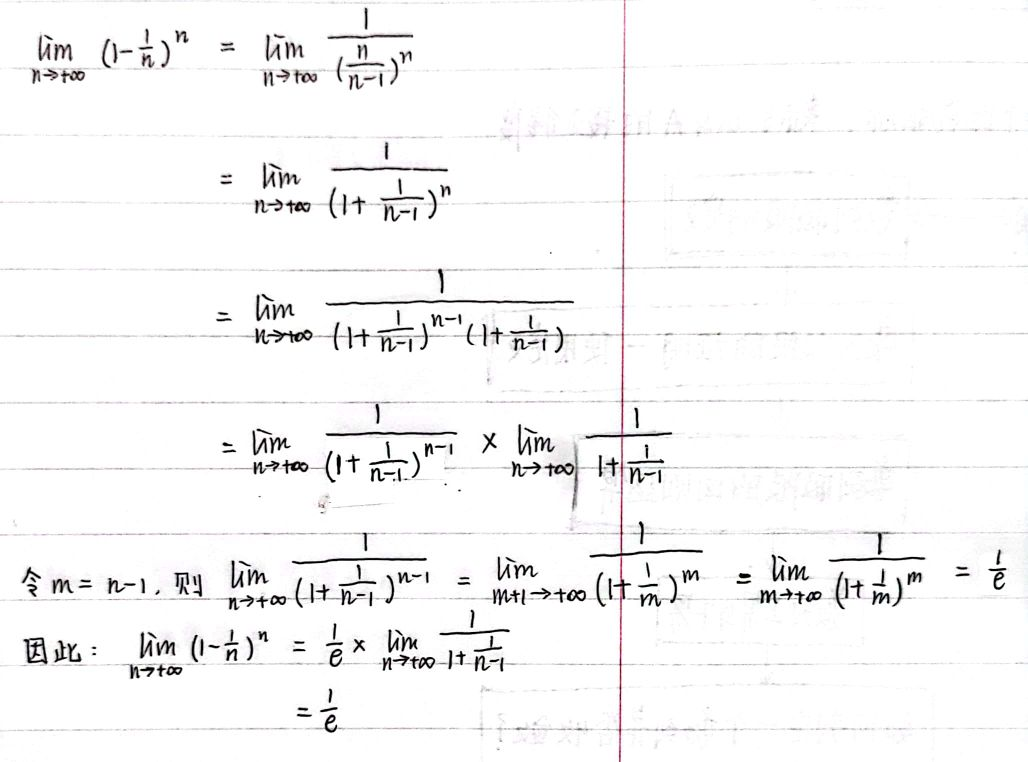 lim_{n→+∞} (1-1/n)^n = lim_{n→+∞} 1/(n/(n-1))^n
= lim_{n→+∞} 1/(1+1/(n-1))^n
= lim_{n→+∞} 1/((1+1/(n-1))^{n-1}(1+1/(n-1)))
= lim_{n→+∞} 1/(1+1/(n-1))^{n-1} × lim_{n→+∞} 1/(1+1/(n-1))
令 m = n-1, 则 lim_{n→+∞} 1/(1+1/(n-1))^{n-1} = lim_{m+1→+∞} 1/(1+1/m)^m = lim_{m→+∞} 1/(1+1/m)^m = 1/e
因此: lim_{n→+∞} (1-1/n)^n = 1/e × lim_{n→+∞} 1/(1+1/(n-1))
= 1/e